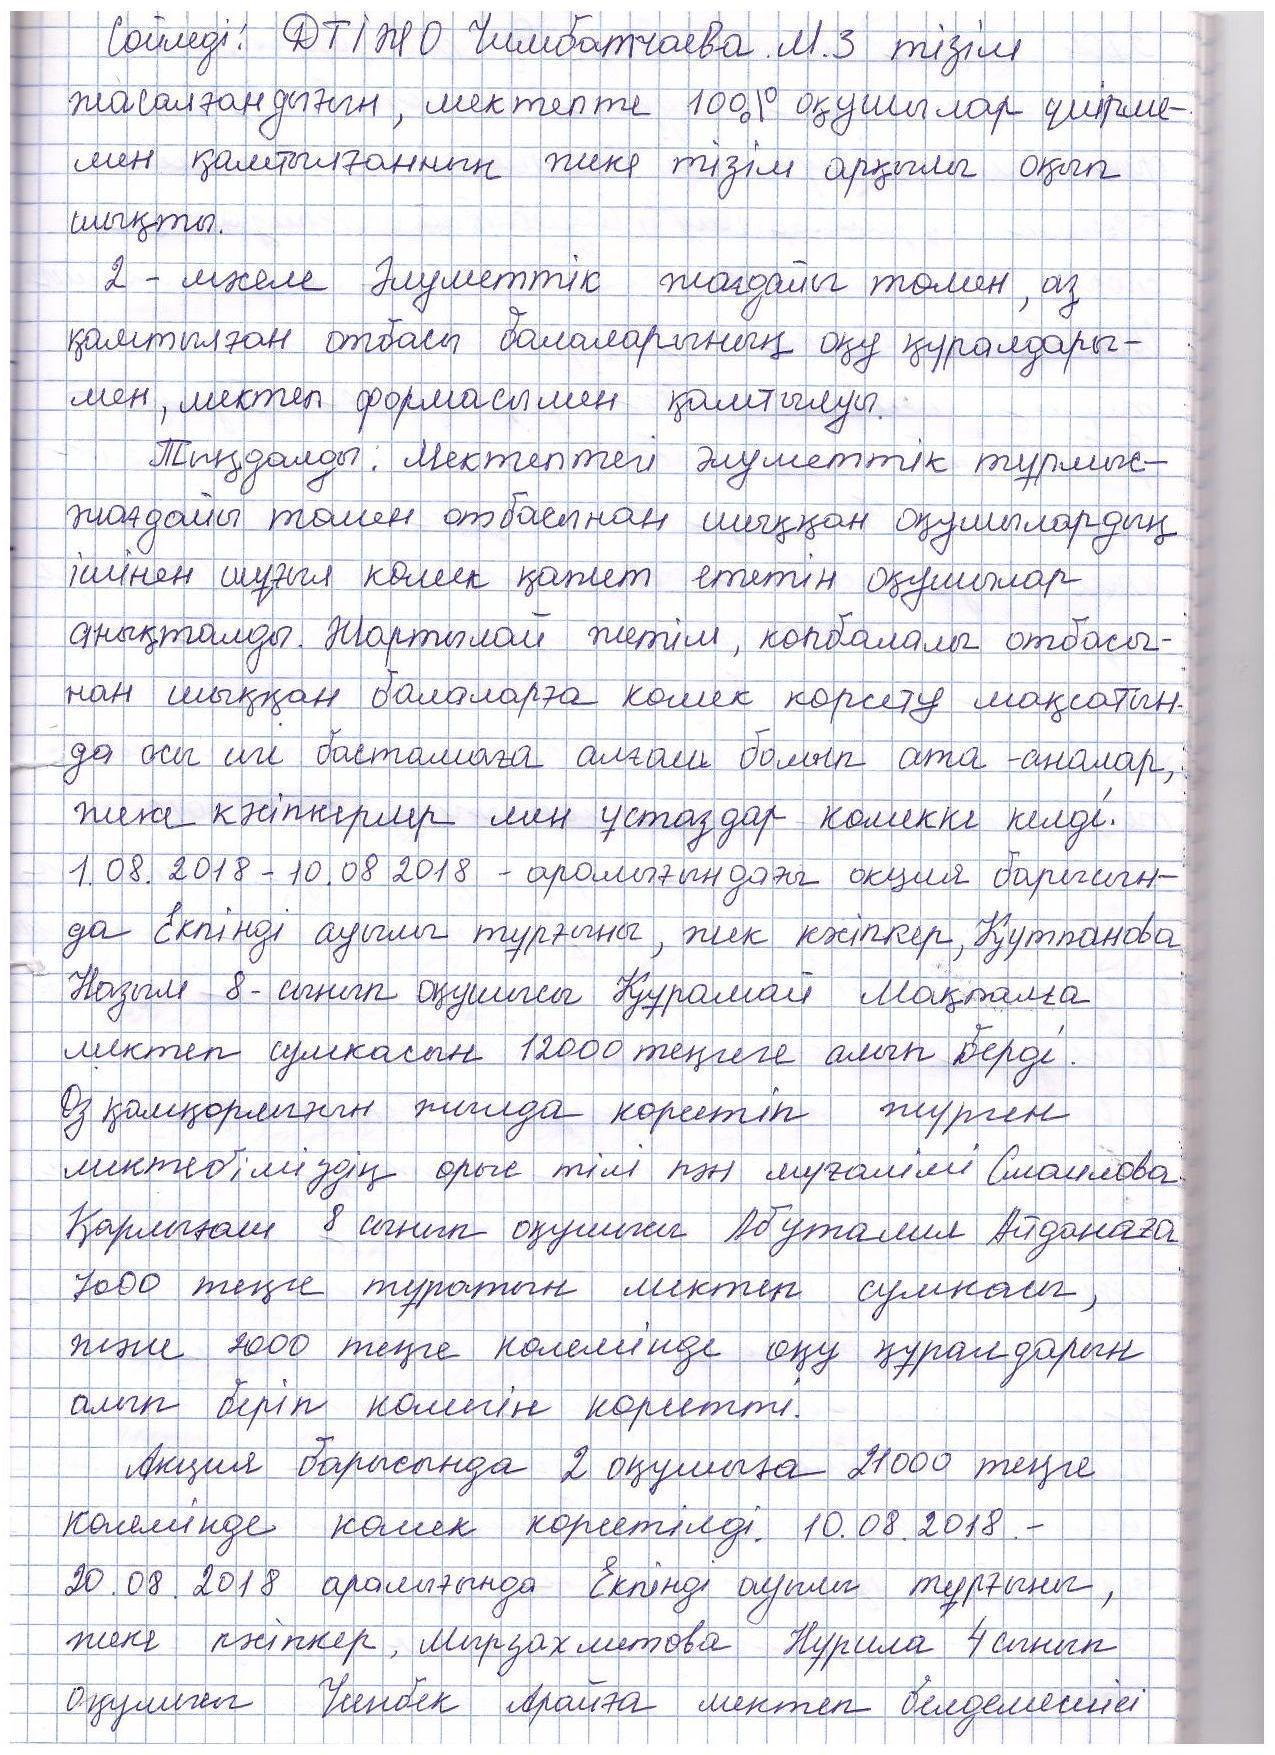 Сөйледі: ДТІЖО Чимбатчаева М.З тізім
жасалғандығын, мектепте 100% оқушылар үйірме-
мен қамтылғанның жеке тізім арқылы оқып
шықты.
2 - мәселе Әлуметтік жағдайы төмен, аз
қамтылған отбасы балаларының оқу құралдары-
мен, мектеп формасымен қамтылуы.
Тыңдалды: Мектептегі әлуметтік тұрмыс-
жағдайы төмен отбасынан шыққан оқушылардың
ішінен шұғыл көмек қажет ететін оқушылар
анықталды. Жартылай жетім, көпбалалы отбасы-
нан шыққан балаларға көмек көрсету мақсатын-
да осы игі бастамаға алғаш болып ата-аналар,
жеке кәсіпкерлер мен ұстаздар көмекке келді.
1.08.2018-10.08 2018 - аралығындағы акция барысын-
да Екпінді ауылы тұрғыны, жек кәсіпкер, Құтпанова
Назым 8-сынып оқушысы Құрамай Мақпалға
мектеп сумкасын 12000 теңгеге алып берді.
Өз қамқорлығын жылда көрсетіп жүрген
мектебіміздің орыс тілі пән мұғалімі Смаилова
Қарлығаш 8 сынып оқушысы Абуталип Айданаға
7000 теңге тұратын мектеп сумкасы,
және 2000 теңге көлемінде оқу құралдарын
алып беріп көмегін көрсетті.
Акция барысында 2 оқушыға 21000 теңге
көлемінде көмек көрсетілді. 10.08.2018.-
20.08.2018 аралығында Екпінді ауылы тұрғыны,
жеке кәсіпкер, Мырзахметова Нурила 4 сынып
оқушысы Үсенбек Арайға мектеп белдемшесі